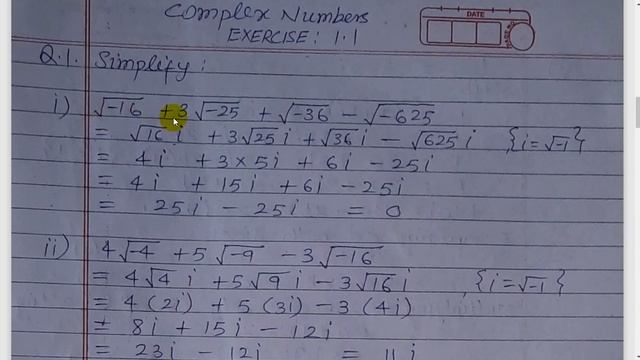 Complex Numbers
EXERCISE: 1.1
DATE
Q.1. Simplify:
i) √-16 + 3√-25 + √-36 - √-625
= √16 i + 3√25 i + √36 i - √625 i {i = √-1}
= 4i + 3×5i + 6i - 25i
= 4i + 15i + 6i - 25i
= 25i - 25i = 0
ii) 4√-4 + 5√-9 - 3√-16
= 4√4 i + 5√9 i - 3√16 i {i = √-1}
= 4(2i) + 5(3i) - 3(4i)
= 8i + 15i - 12i
= 23i - 12i = 11i